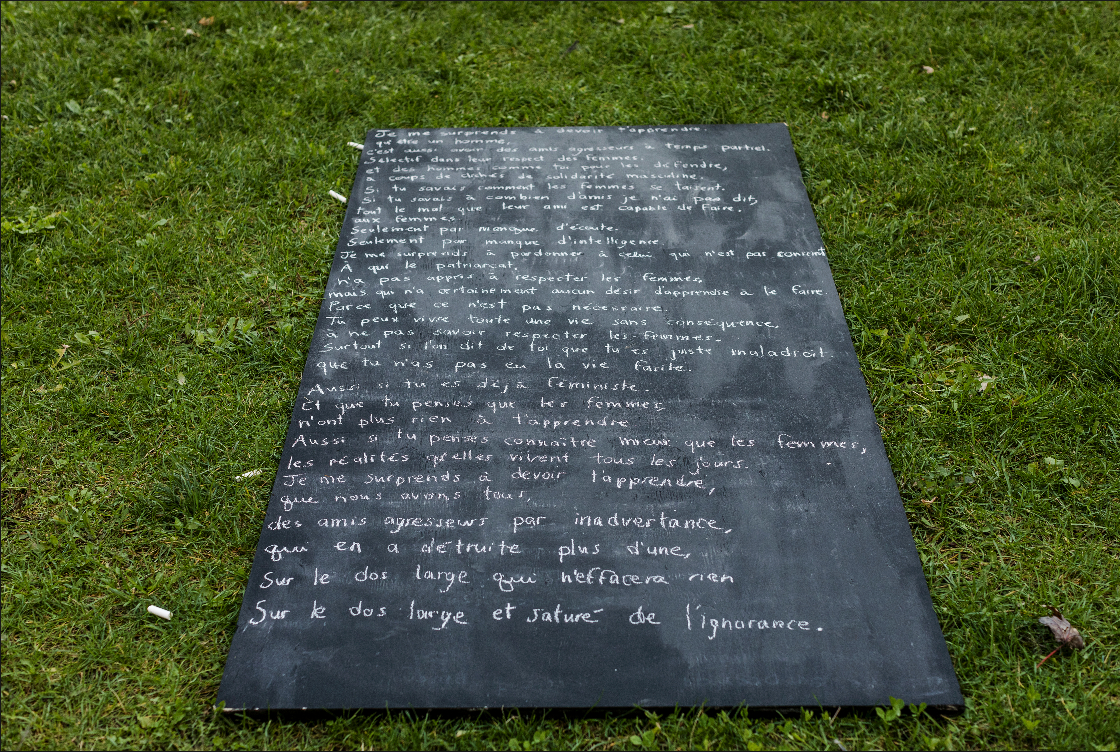 Je me surprends à devoir t'apprendre.
qu'être un homme,
c'est aussi avoir des amis agresseurs à temps partiel.
Sélectif dans leur respect des femmes.
et des hommes comme toi pour les défendre,
à coups de clichés de solidarité masculine.
Si tu savais comment les femmes se taisent.
Si tu savais à combien d'amis je n'ai pas dit,
tout le mal que leur ami est capable de faire.
aux femmes.
Seulement par manque d'écoute.
Seulement par manque d'intelligence.
Je me surprends à pardonner à celui qui n'est pas conscient
À que le patriarcat,
n'a pas appris à respecter les femmes,
mais qui n'a certainement aucun désir d'apprendre à le faire.
Parce que ce n'est pas nécessaire.
Tu peux vivre toute une vie sans conséquence,
à ne pas savoir respecter les femmes.
Surtout si l'on dit de toi que tu es juste maladroit.
que tu n'as pas eu la vie facile.
Aussi si tu es déjà féministe.
Et que tu penses que les femmes,
n'ont plus rien à t'apprendre
Aussi si tu penses connaître mieux que les femmes,
les réalités qu'elles vivent tous les jours.
Je me surprends à devoir t'apprendre,
que nous avons tous,
des amis agresseurs par inadvertance,
qui en a détruite plus d'une,
Sur le dos large qui n'effacera rien
Sur le dos large et saturé de l'ignorance.